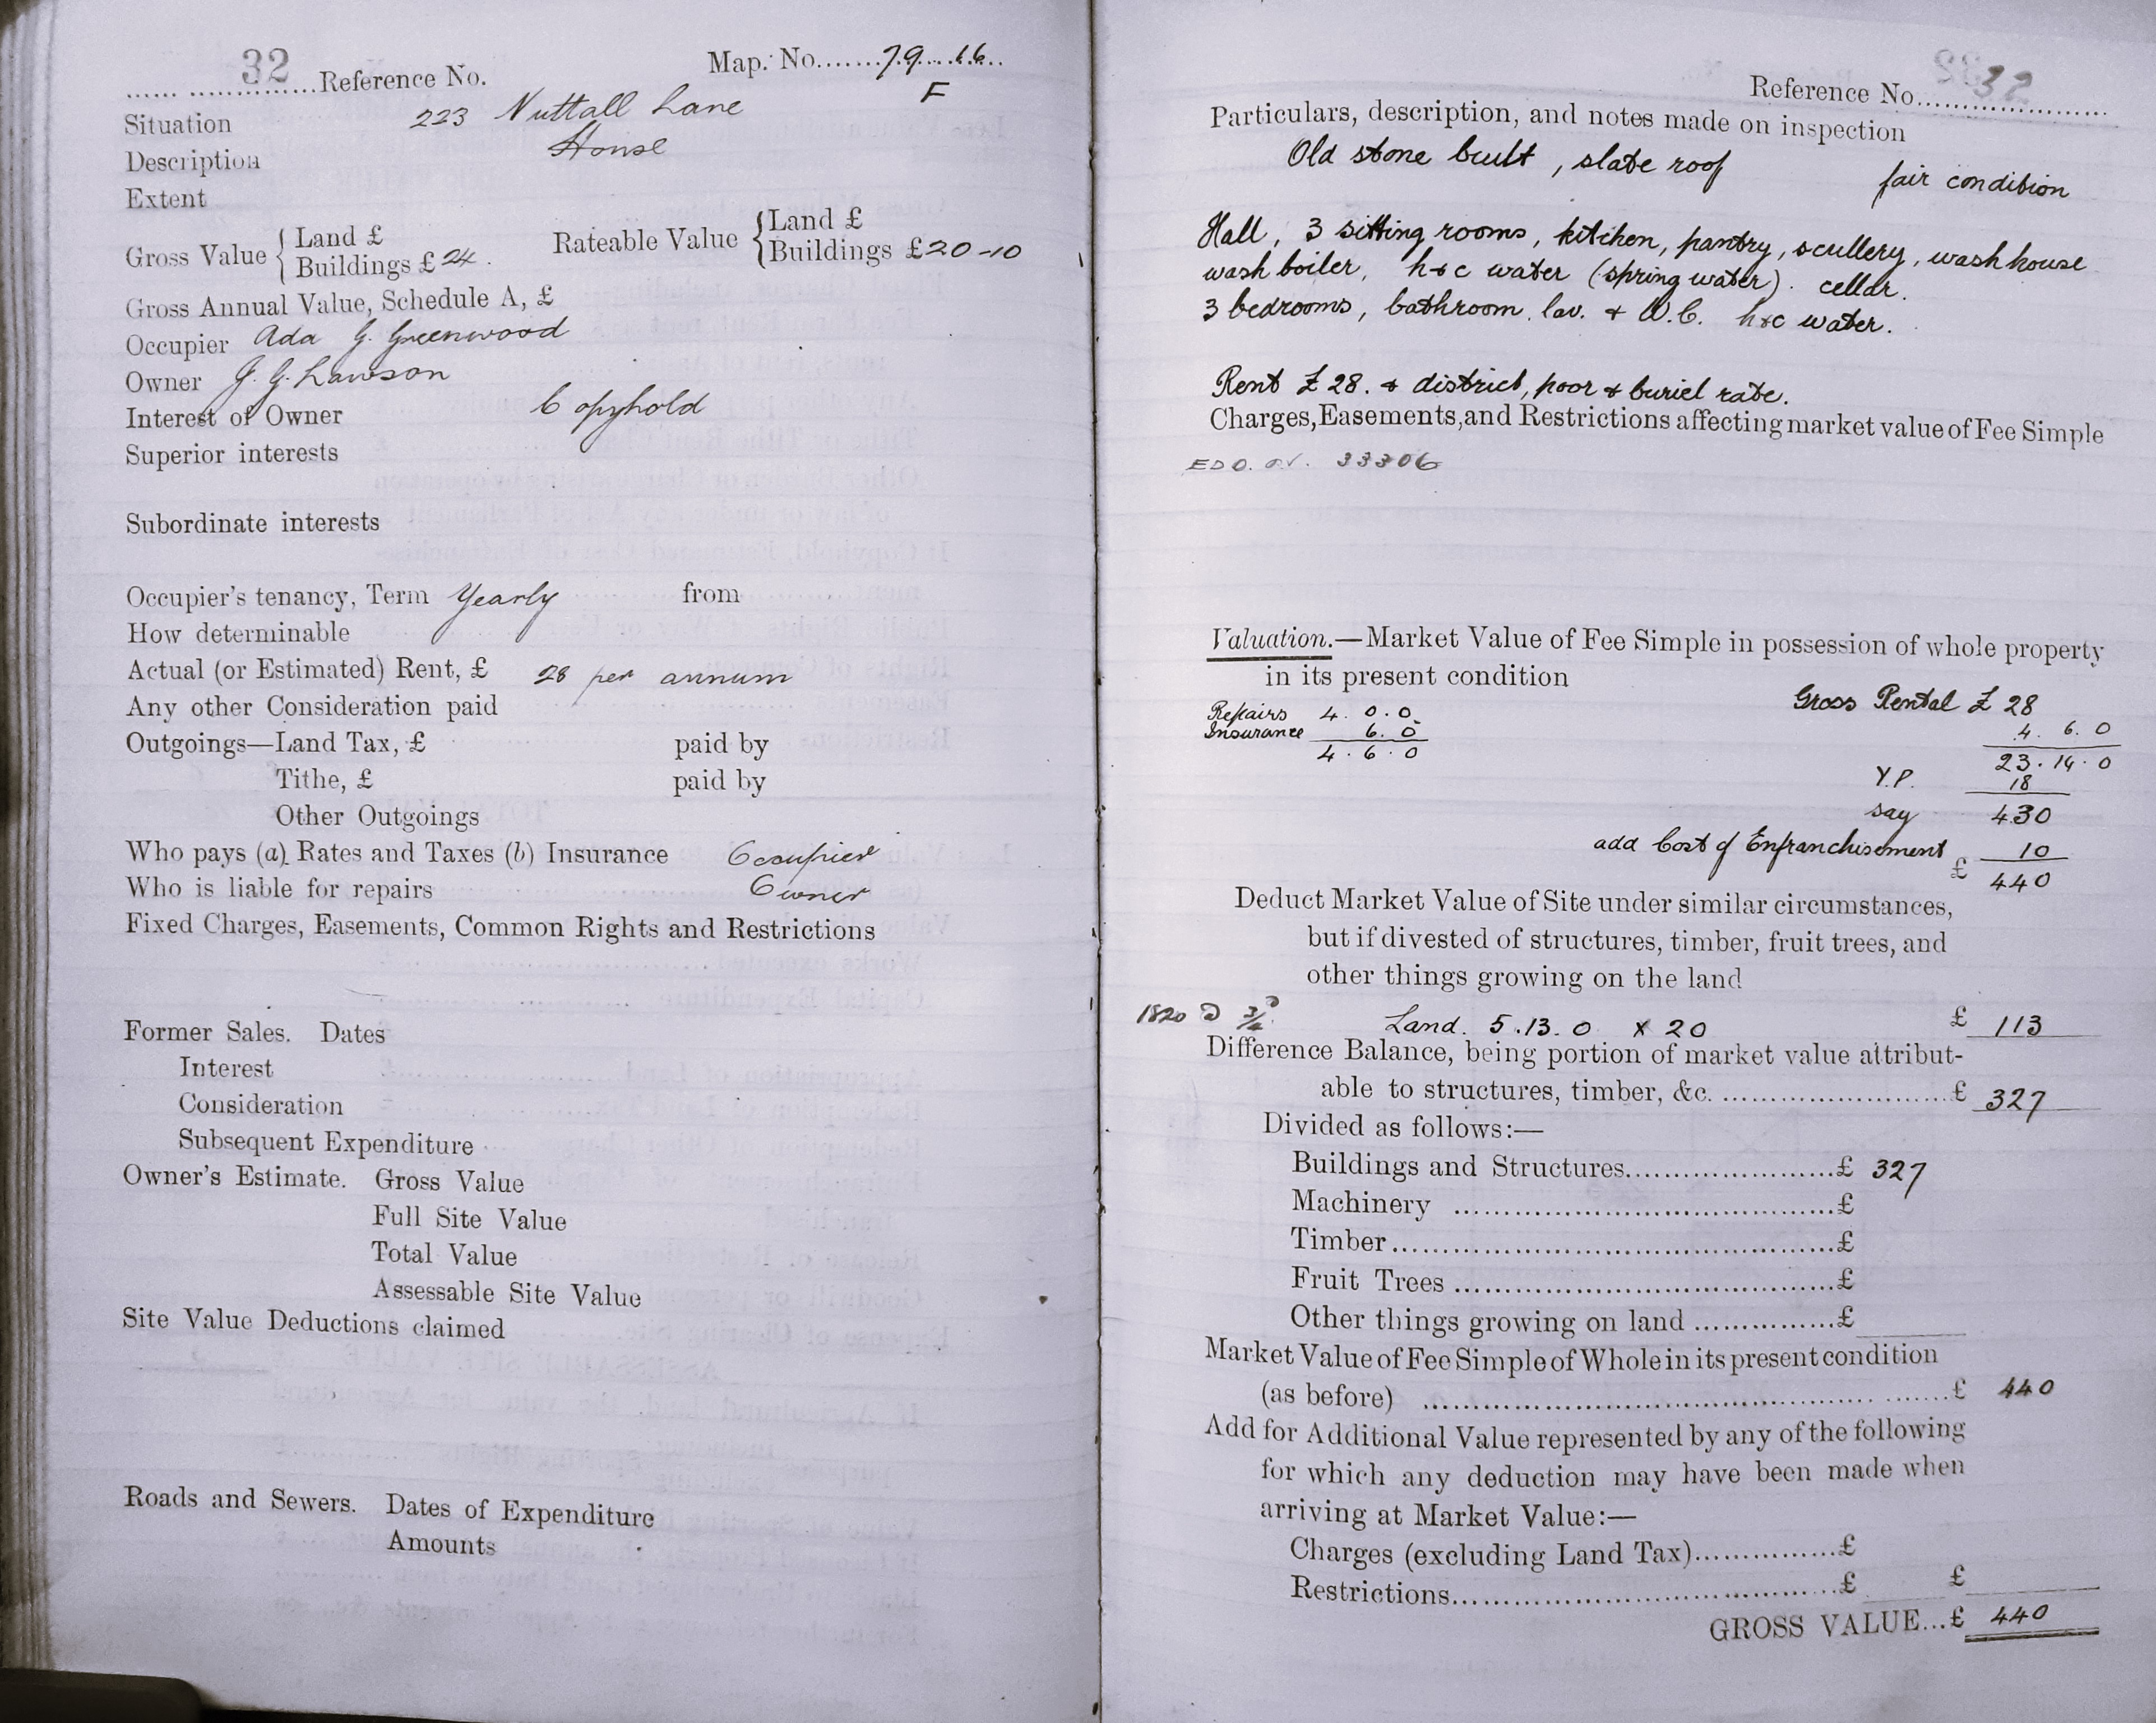 32 Reference No. Map. No. 79 16
F
Situation 223 Nuttall Lane
Description House
Extent
Gross Value { Land £
Buildings £ 24 .
Rateable Value { Land £
Buildings £ 20-10
Gross Annual Value, Schedule A, £
Occupier Ada G. Greenwood
Owner J. G. Lawson
Interest of Owner Copyhold
Superior interests
Subordinate interests
Occupier's tenancy, Term Yearly from
How determinable
Actual (or Estimated) Rent, £ 28 per annum
Any other Consideration paid
Outgoings—Land Tax, £ paid by
Tithe, £ paid by
Other Outgoings
Who pays (a) Rates and Taxes (b) Insurance Occupier
Who is liable for repairs Owner
Fixed Charges, Easements, Common Rights and Restrictions
Former Sales. Dates
Interest
Consideration
Subsequent Expenditure
Owner's Estimate. Gross Value
Full Site Value
Total Value
Assessable Site Value
Site Value Deductions claimed
Roads and Sewers. Dates of Expenditure
Amounts
Reference No. 32
Particulars, description, and notes made on inspection
Old stone built, slate roof fair condition
Hall, 3 sitting rooms, kitchen, pantry, scullery, wash house
wash boiler, h & c water (spring water). cellar.
3 bedrooms, bathroom, lav. & W.C. h & c water.
Rent £ 28. & district, poor & buriel rate.
Charges, Easements, and Restrictions affecting market value of Fee Simple
33306
Valuation.—Market Value of Fee Simple in possession of whole property
in its present condition
Gross Rental £ 28
Repairs 4. 0. 0.
Insurance 6. 0
4. 6. 0
4. 6. 0
23. 14. 0
Y.P. 18
say 430
add Cost of Enfranchisement 10
£ 440
Deduct Market Value of Site under similar circumstances,
but if divested of structures, timber, fruit trees, and
other things growing on the land
1820 @ Land. 5. 13. 0 x 20 £ 113
Difference Balance, being portion of market value attribut-
able to structures, timber, &c. £ 327
Divided as follows:—
Buildings and Structures £ 327
Machinery £
Timber £
Fruit Trees £
Other things growing on land £
Market Value of Fee Simple of Whole in its present condition
(as before) £ 440
Add for Additional Value represented by any of the following
for which any deduction may have been made when
arriving at Market Value:—
Charges (excluding Land Tax) £
Restrictions £ £
GROSS VALUE...£ 440